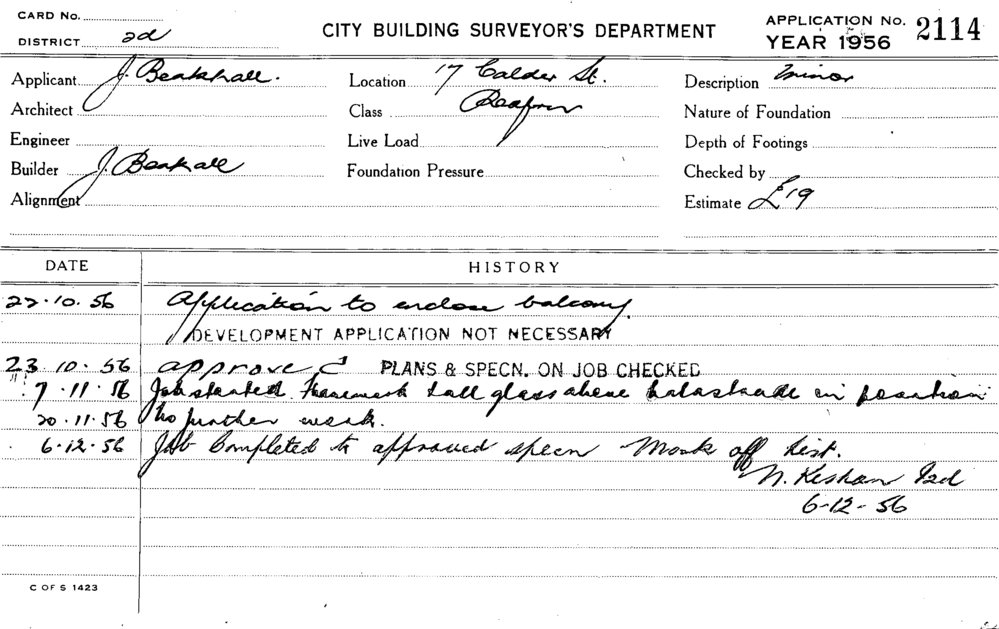 CARD No.
DISTRICT 2d
CITY BUILDING SURVEYOR'S DEPARTMENT
APPLICATION No. 2114
YEAR 1956
Applicant J. Beakhall.
Location 17 Calder St.
Description minor
Architect
Class
Nature of Foundation
Engineer
Live Load
Depth of Footings
Builder J. Beakhall
Foundation Pressure
Checked by
Alignment
Estimate £19
DATE HISTORY
22.10.56 Application to enclose balcony.
DEVELOPMENT APPLICATION NOT NECESSARY
23.10.56 approved PLANS & SPECN. ON JOB CHECKED
7.11.56 Job started. Framework & all glass above balastrade in position
20.11.56 No further work.
6.12.56 Job Completed to approved specn Mark off list.
6-12-56
C OF S 1423